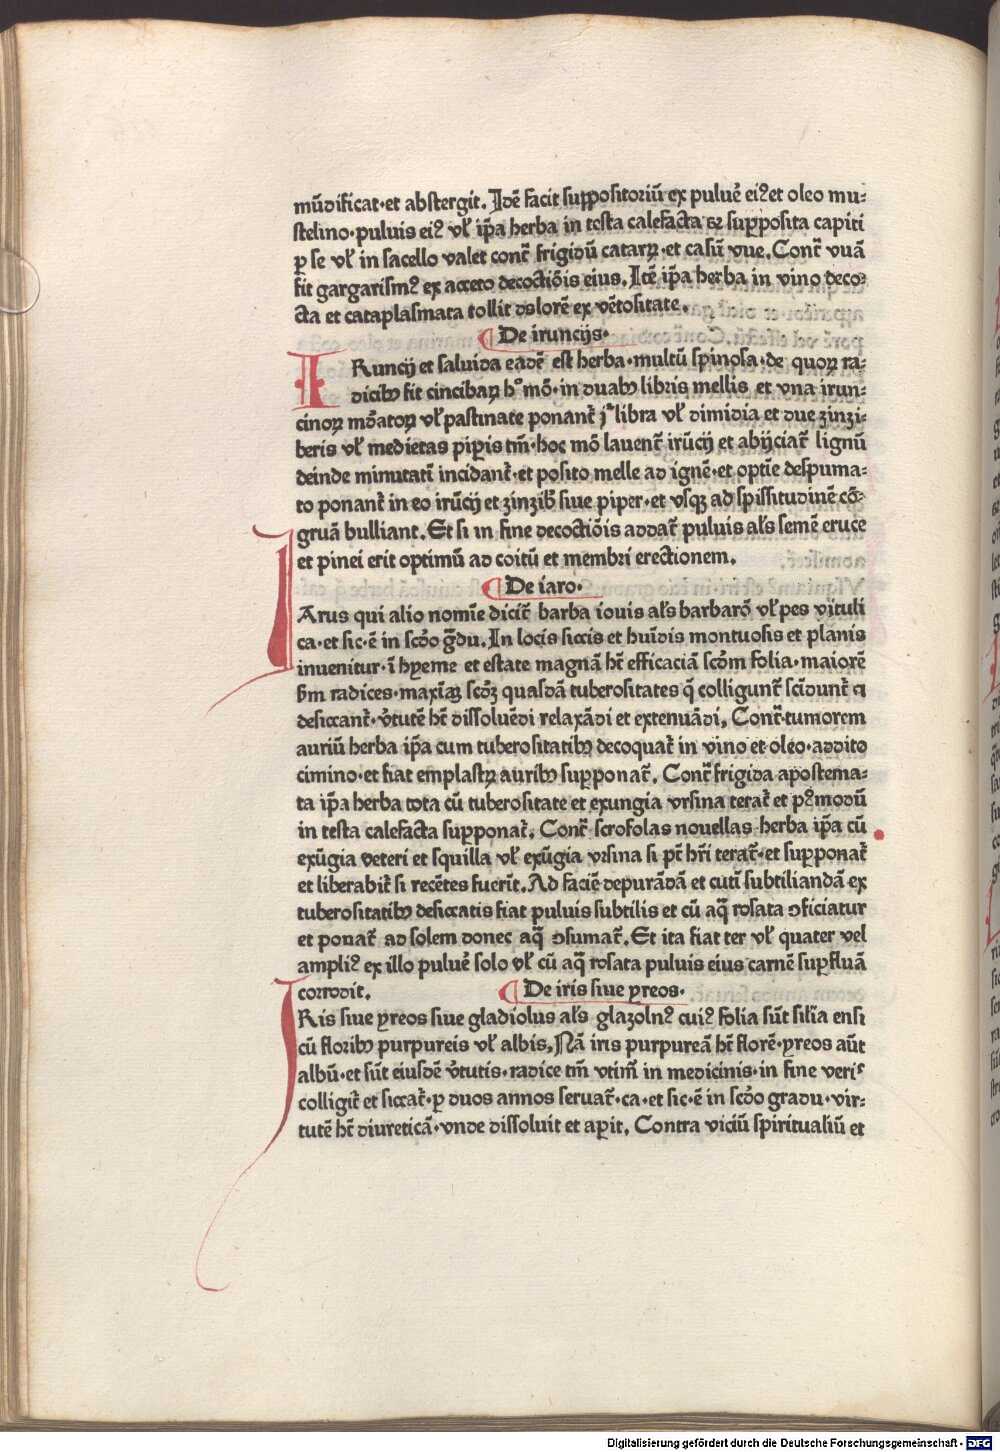 mūdificat·et abstergit. Idē facit suppositoriū ex puluē eiꝰ et oleo mu⸗
stelino·puluis eiꝰ vl̓ ip̄a herba in testa calefacta ⁊ supposita capiti
ꝑ se vl̓ in sacello valet contr̄ frigidū catarꝝ·et casū vue. Contr̄ vuā
fit gargarismꝰ ex aceto decoctiōis eius. Itē ip̄a herba in vino deco⸗
cta et cataplasmata tollit dolorē ex vētositate.
De iruncijs·
IRuncij et saluida eadē est herba·multū spinosa·de quoꝝ ra⸗
dicibꝰ fit cincibaꝝ hᵒ mō·in duabꝰ libris mellis et vna irun⸗
cinoꝝ mōdatoꝝ vl̓ pastinate ponant̄ j libra vl̓ dimidia et due zinzi⸗
beris vl̓ medietas pipis tm̄·hoc mō lauent̄ irūcij et abijciat̄ lignū
deinde minutatī incidant̄·et posito melle ad ignē·et optīe despuma⸗
to ponant̄ in eo irūcij et zinzib̄ siue piper·et vsqꝫ ad spissitudinē cō⸗
gruā bulliant. Et si in fine decoctiōis addat̄ puluis al̄s semē eruce
et pinei erit optimū ad coitū et membri erectionem.
De iaro·
IArus qui alio nomīe dicit̄ barba iouis al̄s barbarō vl̓ pes vituli
ca·et sic·ē in scd̄o gͣdu. In locis siccis et huīdis montuosis et planis
inuenitur·ī hyeme et estate magnā hꝫ efficaciā scd̄m folia·maiorē
ẜm radices·maxīaꝫ scd̄ꝫ quasdā tuberositates q̄ colligunt̄ scīdunt̄ ⁊
desiccant̄·v̓tutē hꝫ dissoluēdi relaxādi et extenuādi. Contr̄·tumorem
auriū herba ip̄a cum tuberositatibꝰ decoquat̄ in vino et oleo·addito
cimino·et fiat emplastꝝ auribꝰ supponat̄. Contr̄ frigida apostema⸗
ta ip̄a herba tota cū tuberositate et exungia vrsina terat̄ et pꝰmodū
in testa calefacta supponat̄. Contr̄ scrofolas nouellas herba ip̄a cū
exūgia veteri et squilla vl̓ exūgia vrsina si pt̄ hr̄i terat̄·et supponat̄
et liberabit̄ si recētes fuerīt. Ad faciē depurādā et cutī subtiliandā ex
tuberositatibꝰ desiccatis fiat puluis subtilis et cū aq̄ rosata ꝯficiatur
et ponat̄ ad solem donec aq̄ ꝯsumat̄. Et ita fiat ter vl̓ quater vel
ampliꝰ ex illo puluē solo vl̓ cū aq̄ rosata puluis eius carnē supfluā
corrodit. De iris siue yreos·
IRis siue yreos siue gladiolus al̄s glazolnꝰ cuiꝰ folia sūt silīa ensi
cū floribꝰ purpureis vl̓ albis. Nā iris purpureā hꝫ florē·yreos aūt
albū·et sūt eiusdē v̓tutis·radice tm̄ vtim̄ in medicinis·in fine veriˢ
colligit̄ et siccat̄·ꝑ duos annos seruat̄·ca·et sic·ē in scd̄o gradu·vir⸗
tutē hꝫ diureticā·vnde dissoluit et apit. Contra viciū spiritualiū et
Digitalisierung gefördert durch die Deutsche Forschungsgemeinschaft - DFG